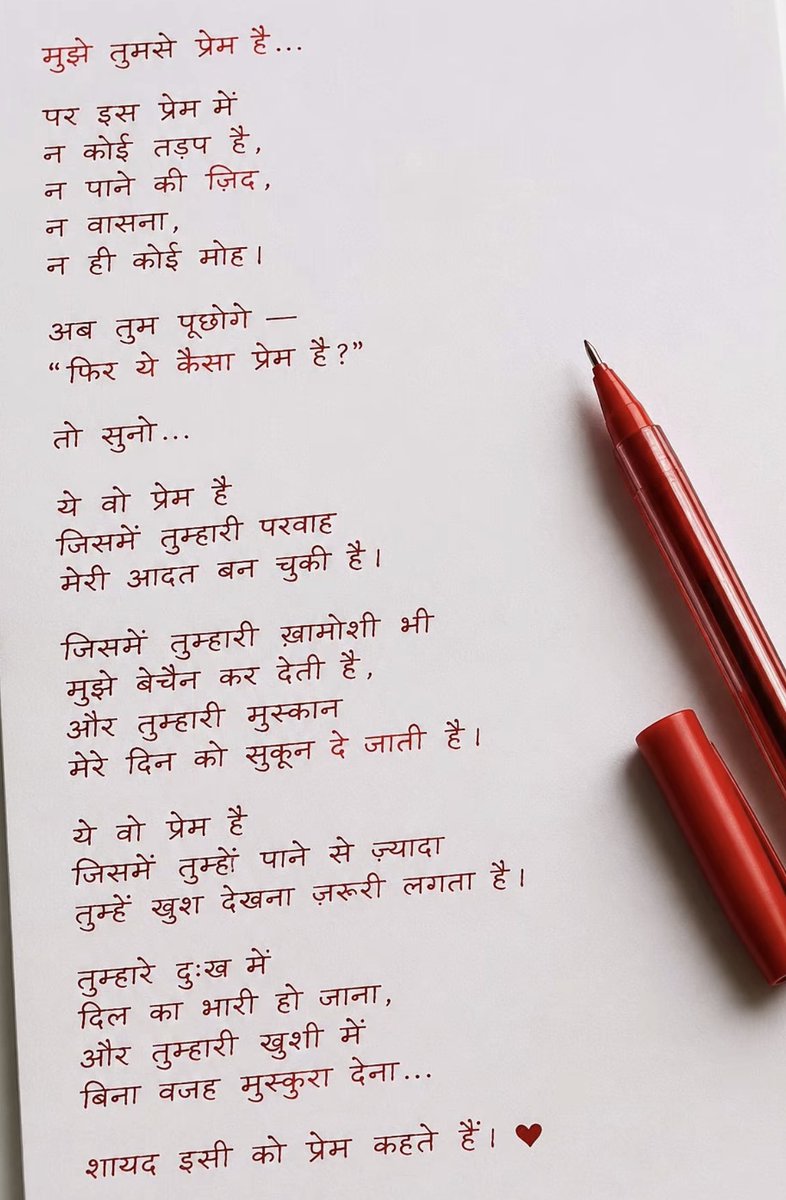 मुझे तुमसे प्रेम है...
पर इस प्रेम में
न कोई तड़प है,
न पाने की ज़िद,
न वासना,
न ही कोई मोह।
अब तुम पूछोगे —
“फिर ये कैसा प्रेम है?”
तो सुनो...
ये वो प्रेम है
जिसमें तुम्हारी परवाह
मेरी आदत बन चुकी है।
जिसमें तुम्हारी ख़ामोशी भी
मुझे बेचैन कर देती है,
और तुम्हारी मुस्कान
मेरे दिन को सुकून दे जाती है।
ये वो प्रेम है
जिसमें तुम्हों पाने से ज़्यादा
तुम्हें खुश देखना ज़रूरी लगता है।
तुम्हारे दुःख में
दिल का भारी हो जाना,
और तुम्हारी खुशी में
बिना वजह मुस्कुरा देना...
शायद इसी को प्रेम कहते हैं। ♥